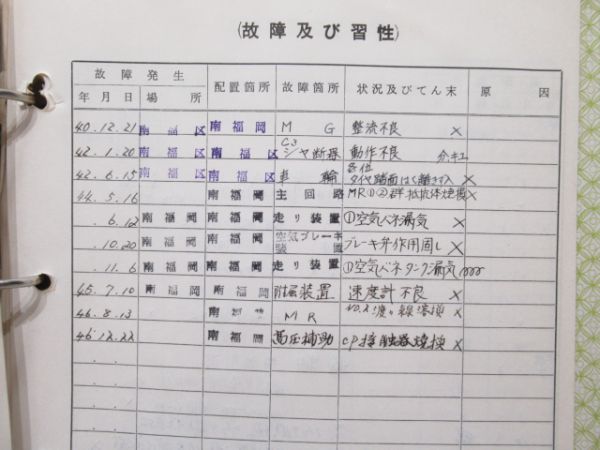 (故障及び習性)
故障発生 配置箇所 故障箇所 状況及びてん末 原因
年月日 場所
40.12.21 南福区 南福岡 MG 整流不良 ×
42.1.20 南福区 南福区 C3 シヤ断器 動作不良
42.6.15 南福区 南福区 車輪 各位 タイヤ踏面はく離
44.5.16 南福岡 主回路 MR①② 群抵抗体焼損 ×
6.12 南福岡 南福岡 走り装置 ①空気バネ漏気 ×
.10.20 南福岡 南福岡 空気ブレーキ装置 ブレーキ弁作用 ×
.11.6 南福岡 南福岡 走り装置 ①空気バネタンク漏気
45.7.10 南福岡 南福岡 附属装置 速度計不良 ×
46.8.13 南福岡 MR ×
46.12.22 南福岡 高圧補助 CP接触器焼損 ×